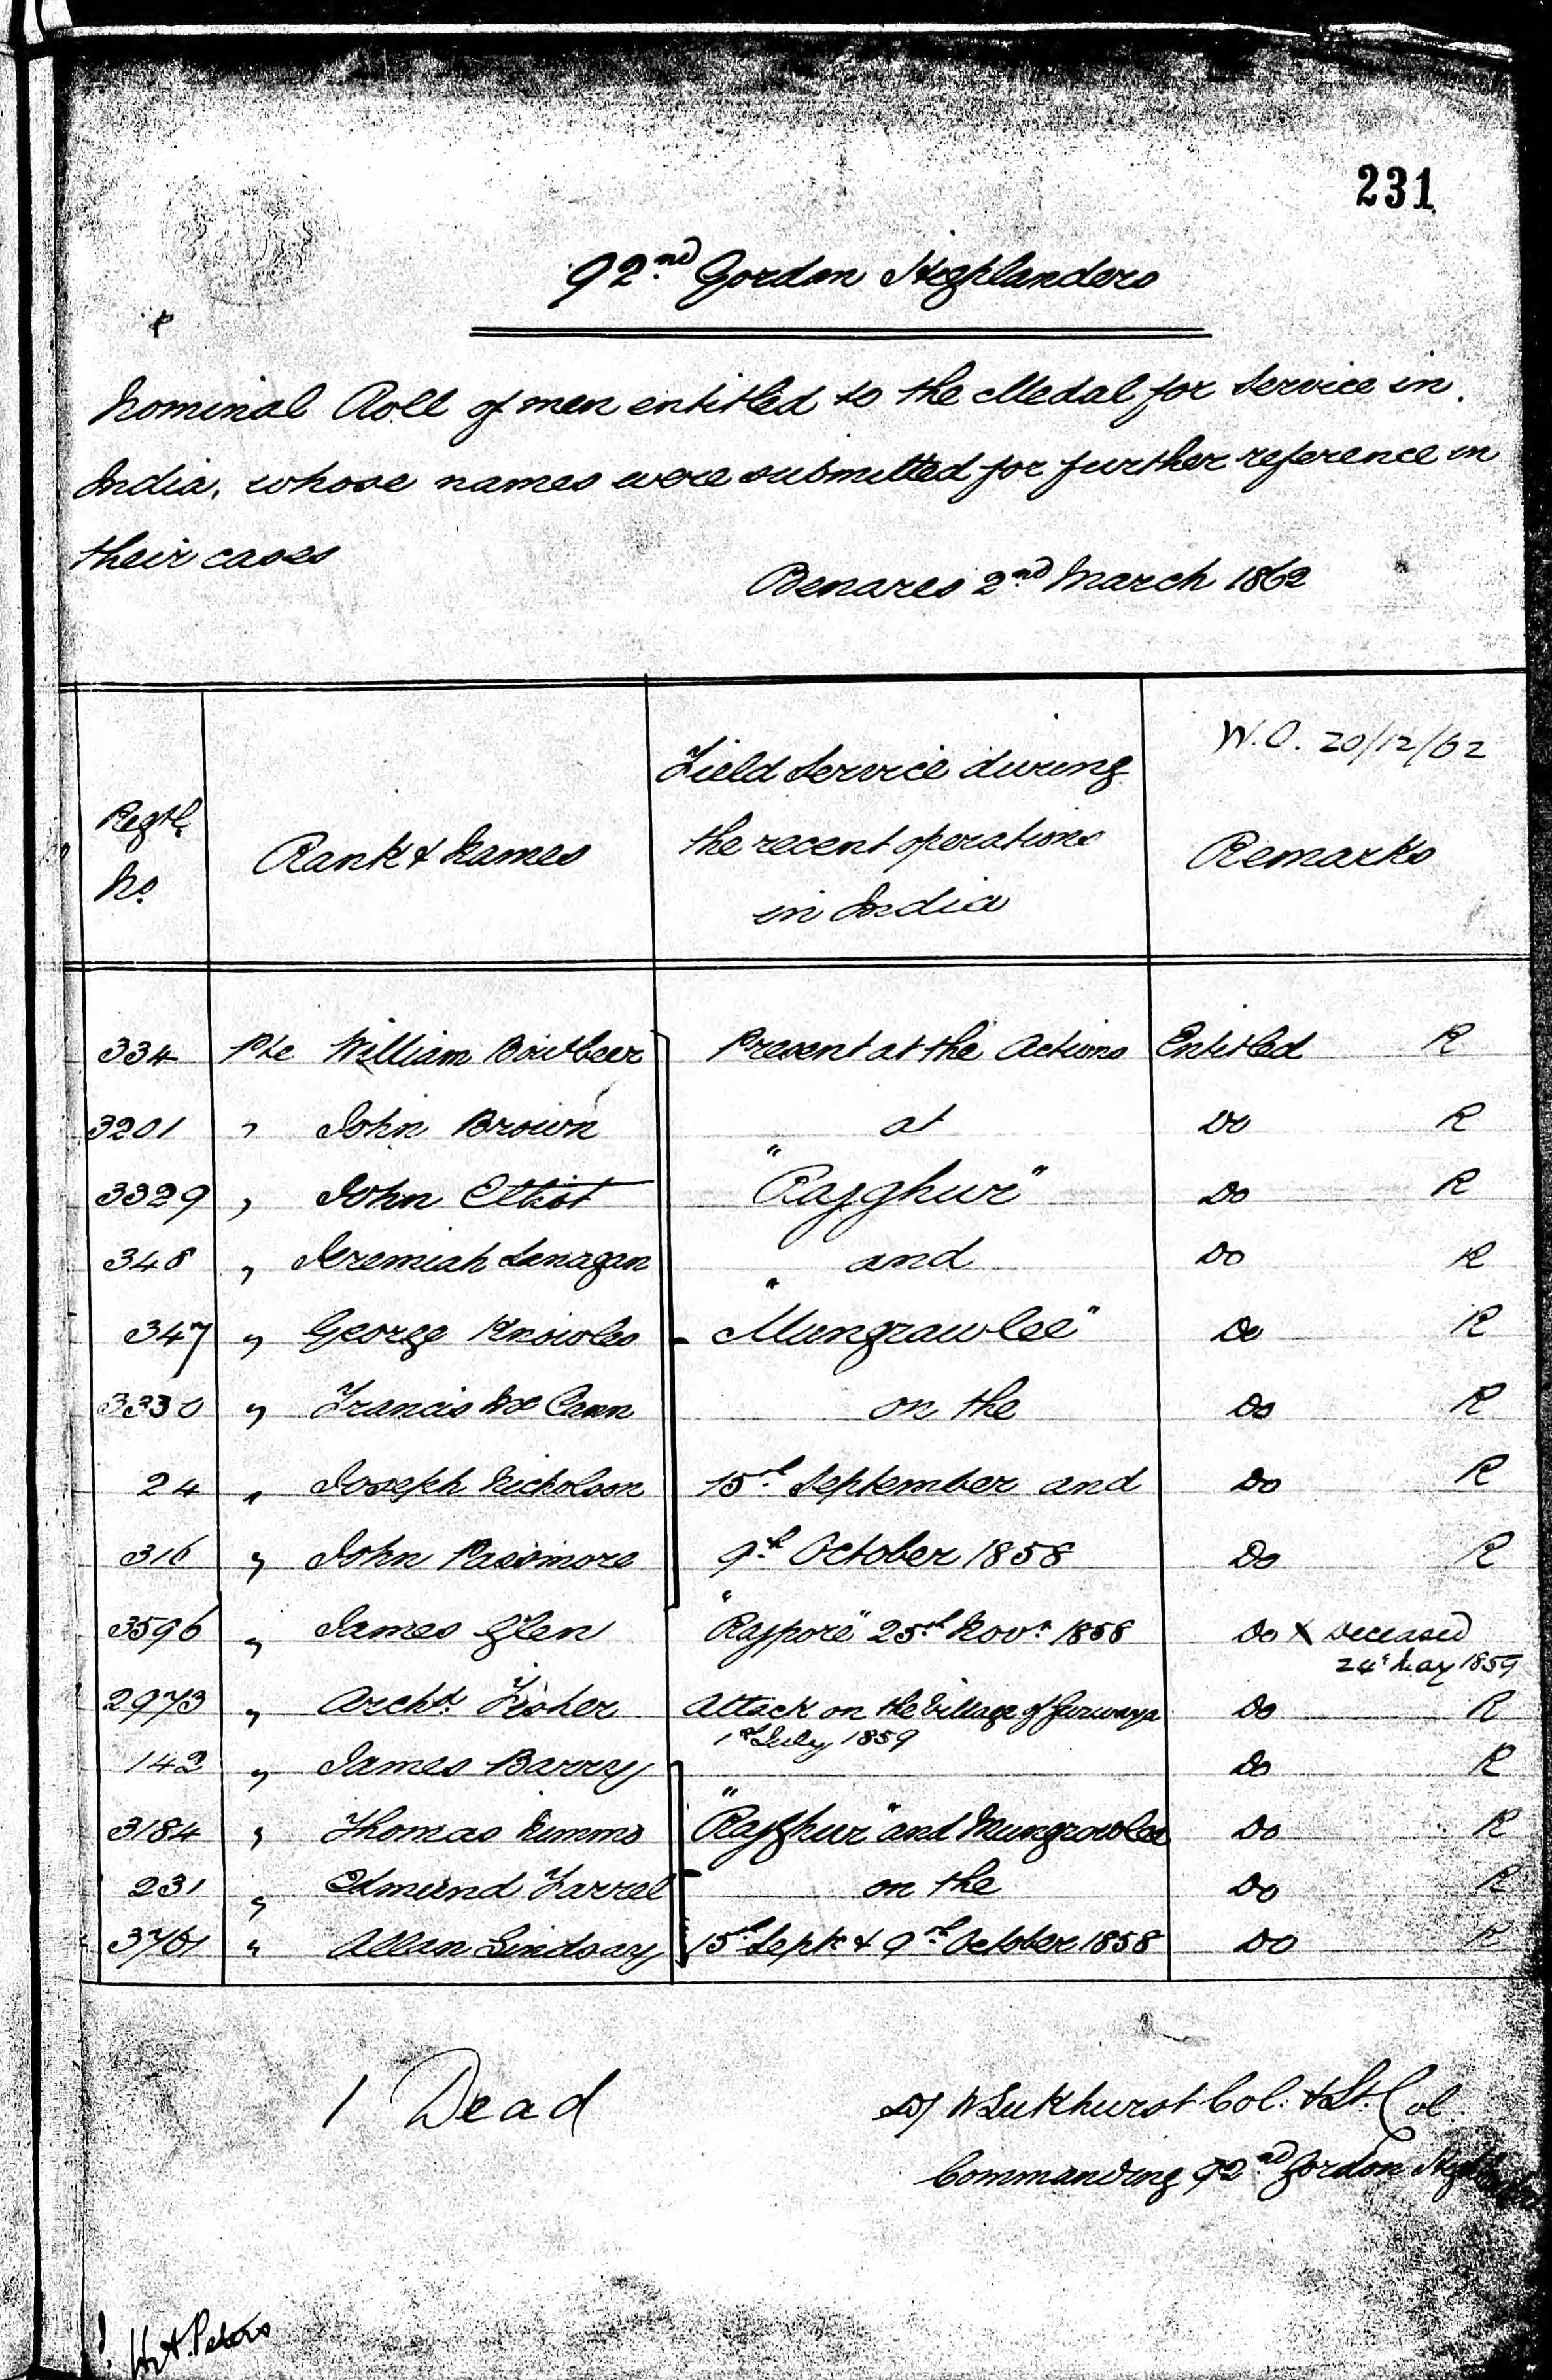 231
92nd Gordon Highlanders
Nominal Roll of men entitled to the Medal for Service in
India, whose names were submitted for further reference in
their cases
Benares 2nd March 1862
W.O. 20/12/62
Regtl No. Rank & Names Field Service during the recent operations in India Remarks
334 Pte William Bowlbeer Present at the Actions Entitled R
3201 " John Brown at Do R
3329 " John Elliot "Rajghur" Do R
348 " Jeremiah Lanagan and Do R
347 " George Knowles "Mungrawlee" Do R
3330 " Francis Mc Cann on the Do R
24 " Joseph Nicholson 15th September and Do R
316 " John Passmore 9th October 1858 Do R
3596 " James Glen "Rajpore" 25th Novr 1858 Do X Deceased
24th May 1859
2973 " Archd. Fisher Attack on the Village of 1st July 1859 Do R
142 " James Barry Do R
3184 " Thomas Nimmo "Rajghur" and Mungrowlee Do R
231 " Edmund Farrel on the Do R
3761 " Allan Lindsay 15th Sept & 9th October 1858 Do R
1 Dead
Col. & Lt. Col
Commanding 92nd Gordon
H.A. Peters